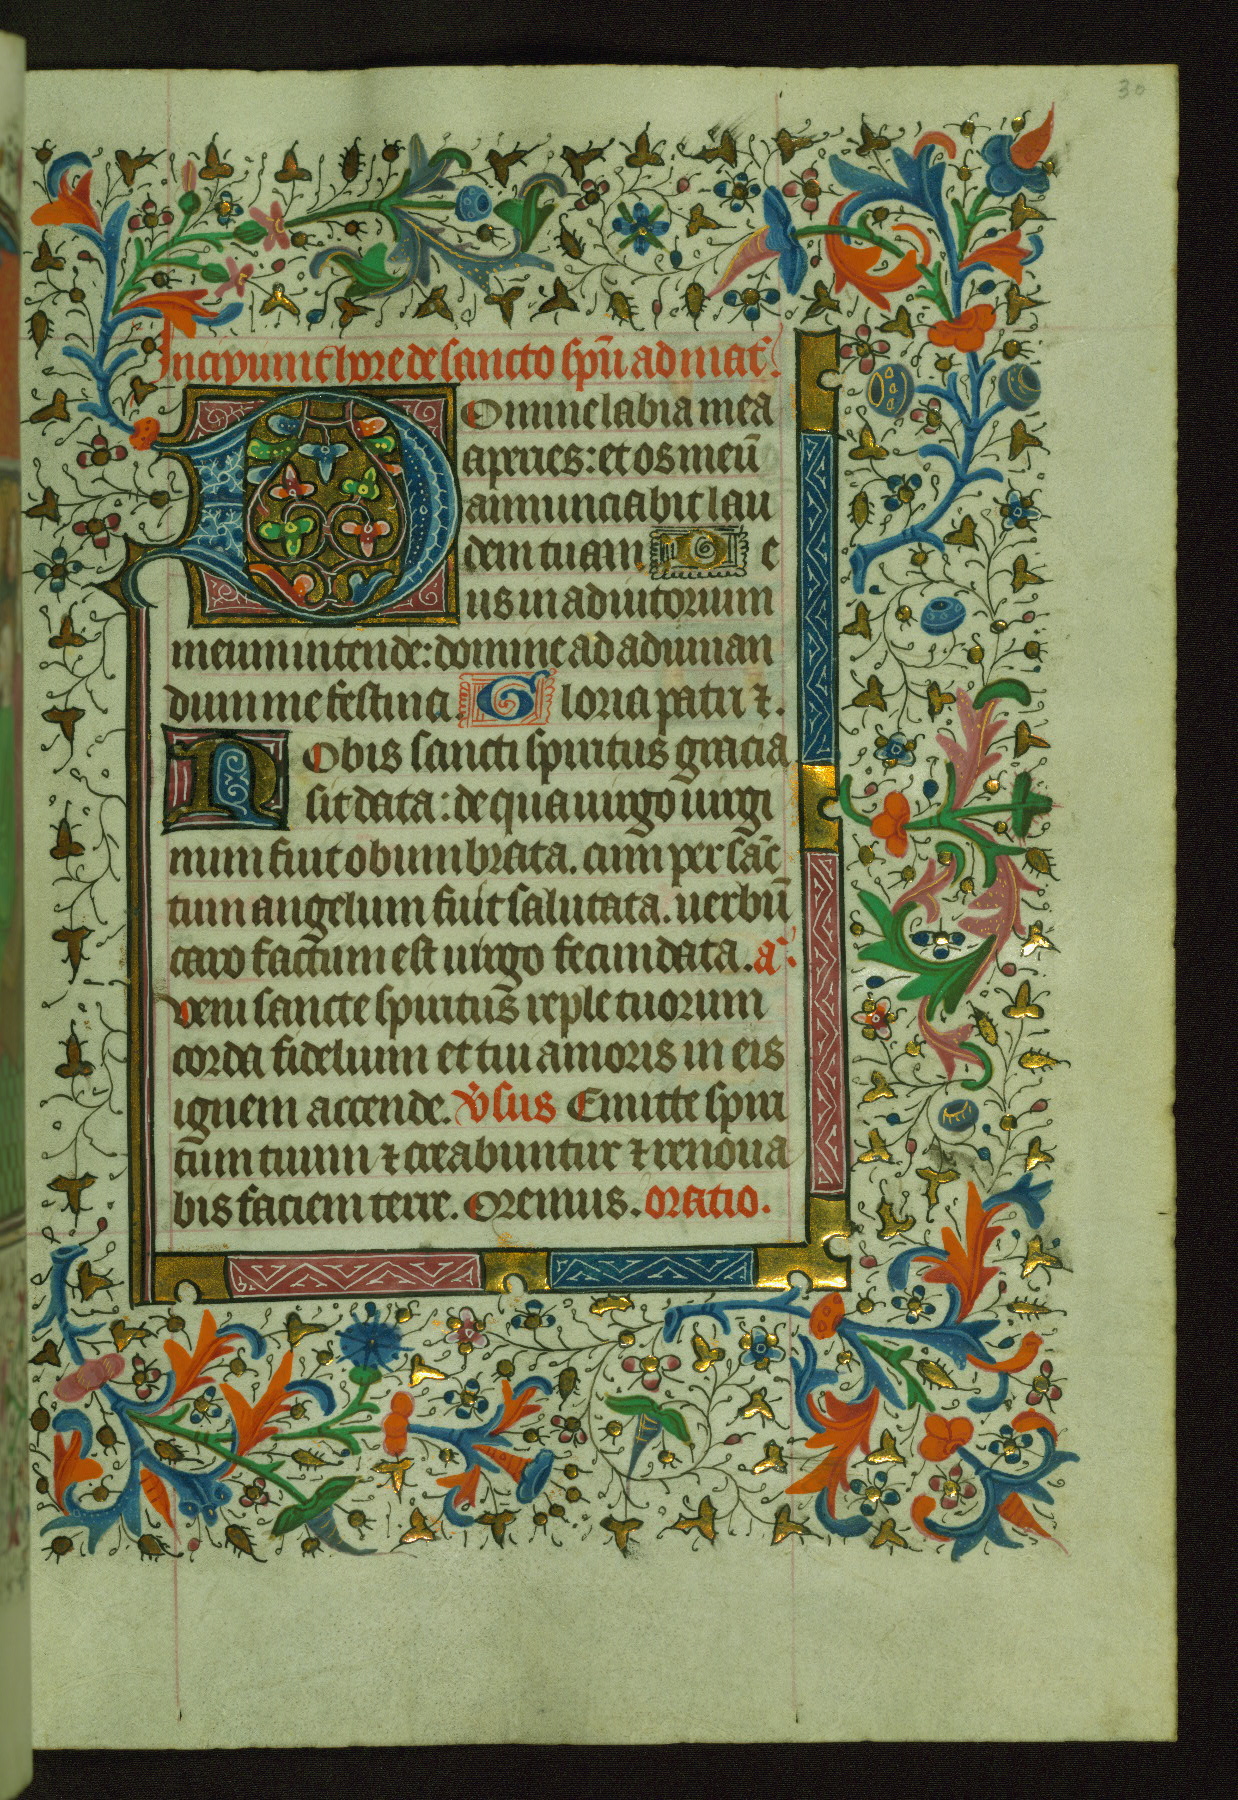 30
Incipiunt hore de sancto spū ad mat̄.
Domine labia mea
aperies: et os meū
annunciabit lau
dem tuam. D e
us in adiutorium
meum intende: domine ad adiuuan
dum me festina. Gloria patri ⁊.
Nobis sancti spiritus gracia
sit data: de qua uirgo uirgi
num fuit obumbrata. cum per sāc
tum angelum fuit salutata. uerbū
caro factum est uirgo fecundata. a᷎.
Veni sancte spiritus reple tuorum
corda fidelium et tui amoris in eis
ignem accende. v̄sus Emitte spiri
tum tuum ⁊ creabuntur ⁊ renoua
bis faciem terre. Oremus. oratio.